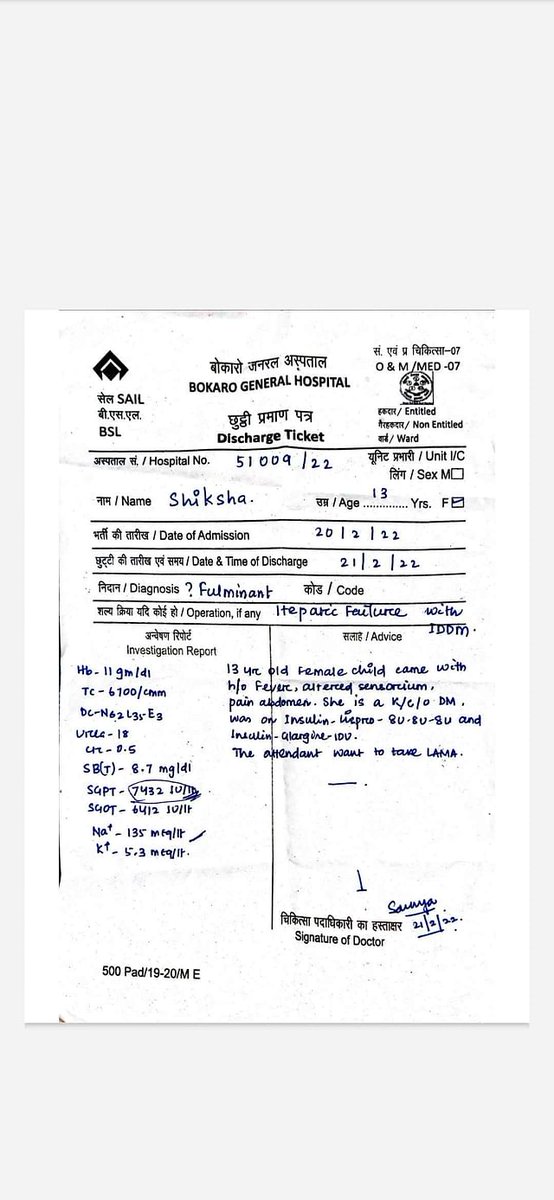 सं. एवं प्र चिकित्सा–07
O & M /MED -07
बोकारो जनरल अस्पताल
BOKARO GENERAL HOSPITAL
सेल SAIL
बी.एस.एल.
BSL
छुट्टी प्रमाण पत्र
Discharge Ticket
हकदार/ Entitled
गैरहकदार/ Non Entitled
वार्ड/ Ward
अस्पताल सं. / Hospital No. 51009/22
यूनिट प्रभारी / Unit I/C
लिंग / Sex M
नाम / Name Shiksha.
उम्र / Age 13 Yrs. F
भर्ती की तारीख / Date of Admission 20/2/22
छुट्टी की तारीख एवं समय / Date & Time of Discharge 21/2/22
निदान / Diagnosis ? Fulminant कोड / Code
शल्य क्रिया यदि कोई हो / Operation, if any Heparic Failure with
IDDM.
अन्वेषण रिपोर्ट
Investigation Report
Hb - 11 gm/dl
TC - 6700/cmm
DC - N62 L35 E3
Urea - 18
Cr - 0.5
SB(T) - 8.7 mg/dl
SGPT - 7432 IU/lt
SGOT - 6412 IU/lt
Na+ - 135 meq/lt
K+ - 5.3 meq/lt.
सलाह / Advice
13 yr old Female child came with
h/o Fever, altered sensorium,
pain abdomen. She is a K/c/o DM,
was on Insulin - Lispro - 8U-8U-8U and
Insulin - Glargine - 10U.
The attendant want to take LAMA.
Saumya
21/2/22.
चिकित्सा पदाधिकारी का हस्ताक्षर
Signature of Doctor
500 Pad/19-20/M E